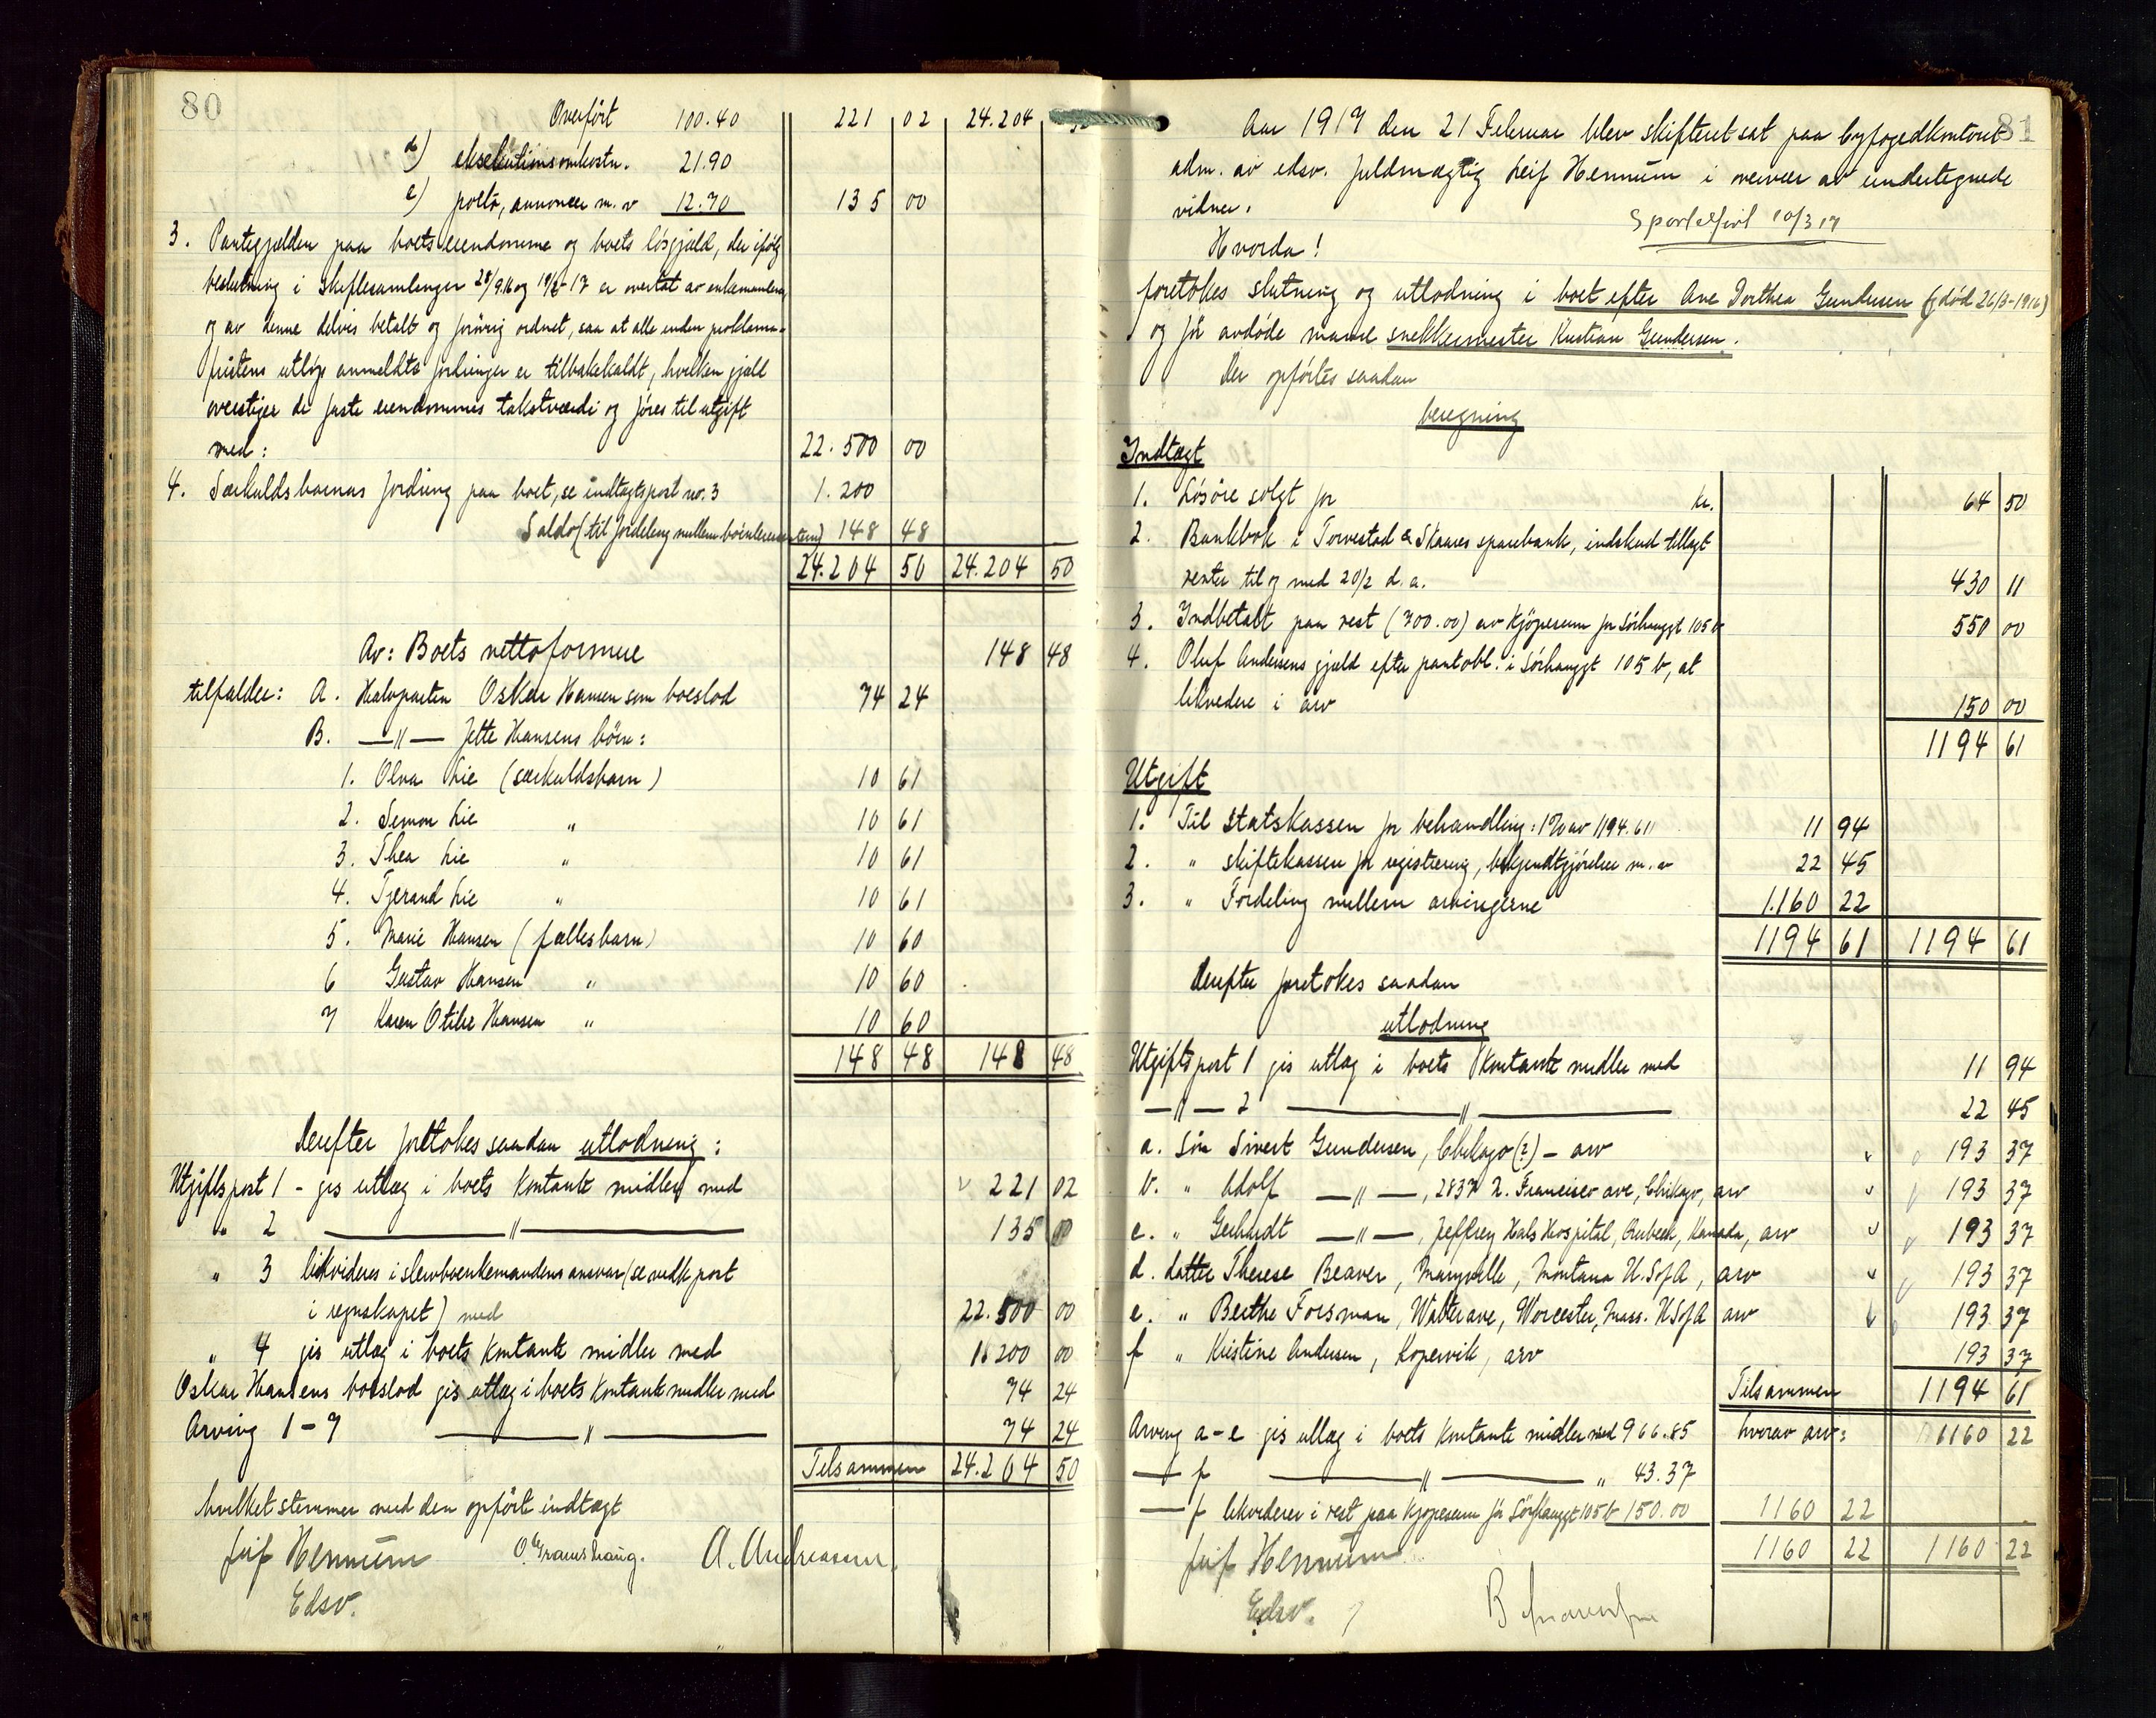 80
Overført 100.40 221 02 24.204
d) eksekutionsomkostn. 21.90
e) porto, annoncer m.v 12.70 135 00
3. Pantegjælden paa boets eiendomme og boets løsgjæld, der ifølg
beslutning i skiftesamlinger 28/9.16 og 19/2-17 er overtat av enkemanden
og av denne delvis betalt og forøvrig ordnet, saa at alle inden proklama-
fristens utløp anmeldte fordringer er tilbakekaldt, hvilken gjæld
overstiger de faste eiendommes takstværdi og føres til utgift
med: 22.500 00
4. Særkuldsbarnas fordring paa boet, se indtægtspost no. 3 1.200
Saldo (til fordeling mellem bointeressentene) 148 48
24.204 50 24.204 50
Av: Boets nettoformue 148 48
tilfalder: A. Halvparten Oskar Hansen som boeslod 74 24
B. —"— Jette Hansens børn:
1. Olva Lie (særkuldsbarn) 10 61
2. Simon Lie " 10 61
3. Thea Lie " 10 61
4. Tjerand Lie " 10 61
5. Marie Hansen (fællesbarn) 10 60
6 Gustav Hansen " 10 60
7 Karen Otilie Hansen " 10 60
148 48 148 48
Derefter foretokes saadan utlodning:
Utgiftspost 1 - gis utlæg i boets kontante midler med 221 02
" 2 —"— 135 00
" 3 likvideres i stervboenkemandens ansvar (se nedst. post
i regnskapet) med 22.500 00
" 4 gis utlæg i boets kontante midler med 1200 00
Oskar Hansens boeslod gis utlæg i boets kontante midler med 74 24
Arving 1-7 —"— 74 24
Tilsammen 24.204 50
hvilket stemmer med den opførte indtægt
Leif Hennum A. Andreassen.
Edsv.
81
Aar 1917 den 21 Februar blev skifteret sat paa byfogedkontoret
adm. av edsv. fuldmægtig Leif Hennum i overvær av undertegnede
vidner.
Sportelført 10/3 17
Hvorda!
foretokes slutning og utlodning i boet efter Ane Dorthea Gundersen (død 26/3-1916)
og før avdøde mand snekkermester Kristian Gundersen.
Der opførtes saadan
beregning
Indtægt
1. Løsøre solgt for kr. 64 50
2. Bankbok i Torvestad & Skaares sparebank, indskud tillagt
renter til og med 20/2 d.a. 430 11
3. Indbetalt paa rest (700.00) av kjøpesum for Sørhauggt 105 b 550 00
4. Oluf Andersens gjæld efter pantobl. i Sørhauggt 105 b, at
likvidere i arv 150 00
1194 61
Utgift
1. Til statskassen for behandling: 1% av 1194.61 11 94
2. " skiftekassen for registrering, bekjendtgjørelser m.v 22 45
3. " Fordeling mellem arvingerne 1.160 22
1194 61 1194 61
Derefter foretokes saadan
utlodning
Utgiftspost 1 gis utlæg i boets kontante midler med 11 94
—"— 2 —"— 22 45
a. Søn Sivert Gundersen, Chikago (?) - arv 193 37
b. " Adolf —"—, 2837 N. Francisco ave, Chikago, arv 193 37
c. " Gerhardt —"—, Jeffrey Hals Hospital, Qubeck, Kanada, arv 193 37
d. Datter Therese Beaver, Marysville, Montana U.S of A, arv 193 37
e. " Berthe Forsman, Walter ave, Worcester, Mass. U.S of A arv 193 37
f " Kristine Andersen, Kopervik, arv 193 37
Tilsammen 1194 61
Arving a-e gis utlæg i boets kontante midler med 966.85 hvorav arv: 1160 22
— f —"— " 43.37
— f likviderer i rest paa kjøpesum for Sørhauggt 105 b 150.00 1160 22
1160 22 1160 22
Leif Hennum
Edsv.